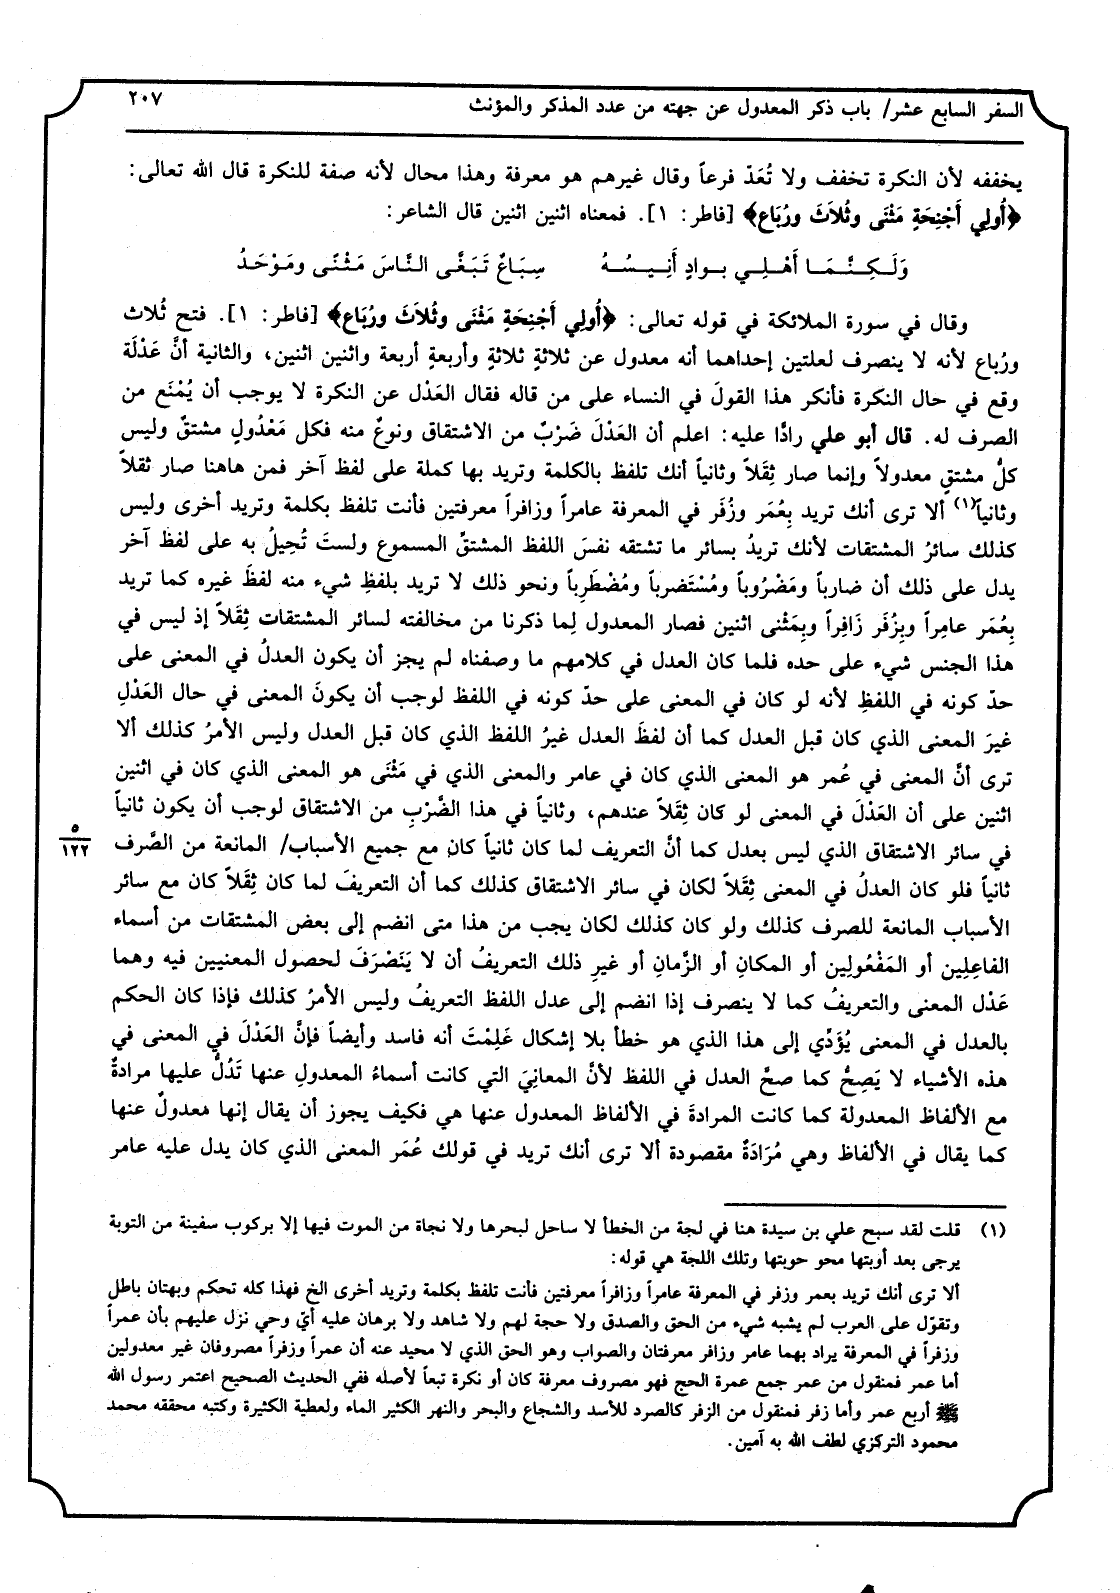 السفر السابع عشر/ باب ذكر المعدول عن جهته من عدد المذكر والمؤنث
٢٠٧
يخففه لأن النكرة تخفف ولا تُعَدّ فرعاً وقال غيرهم هو معرفة وهذا محال لأنه صفة للنكرة قال الله تعالى:
﴿أُولي أَجْنِحَةٍ مَثْنَى وثُلاَثَ ورُبَاع﴾ [فاطر: ١]. فمعناه اثنين اثنين قال الشاعر:
وَلَكِنَّمَا أَهْلِي بوادٍ أَنِيسُهُ سِبَاعٌ تَبَغَّى النَّاسَ مَثْنًى ومَوْحَدُ
وقال في سورة الملائكة في قوله تعالى: ﴿أُولي أَجْنِحَةٍ مَثْنَى وثُلاَثَ ورُبَاع﴾ [فاطر: ١]. فتح ثُلاث
ورُباع لأنه لا ينصرف لعلتين إحداهما أنه معدول عن ثلاثةٍ ثلاثةٍ وأربعةٍ أربعة واثنين اثنين، والثانية أنَّ عَدْلَة
وقع في حال النكرة فأنكر هذا القولَ في النساء على من قاله فقال العَدْل عن النكرة لا يوجب أن يُمْنَع من
الصرف له. قال أبو علي رادًّا عليه: اعلم أن العَدْلَ ضَرْبٌ من الاشتقاق ونوعٌ منه فكل مَعْدُولٍ مشتقٌ وليس
كلُّ مشتقٍ معدولاً وإنما صار ثِقَلاً وثانياً أنك تلفظ بالكلمة وتريد بها كملة على لفظ آخر فمن هاهنا صار ثقلاً
وثانياً(١) ألا ترى أنك تريد بِعُمَر وزُفَر في المعرفة عامراً وزافراً معرفتين فأنت تلفظ بكلمة وتريد أخرى وليس
كذلك سائرُ المشتقات لأنك تريدُ بسائر ما تشتقه نفسَ اللفظ المشتقُ المسموع ولستَ تُحِيلُ به على لفظ آخر
يدل على ذلك أن ضارباً ومَضْرُوباً ومُسْتَضرباً ومُضْطَرِباً ونحو ذلك لا تريد بلفظِ شيء منه لفظَ غيره كما تريد
بِعُمَر عامِراً وبِزُفَر زَافِراً وبِمَثْنى اثنين فصار المعدول لِما ذكرنا من مخالفته لسائر المشتقات ثِقَلاً إذ ليس في
هذا الجنس شيء على حده فلما كان العدل في كلامهم ما وصفناه لم يجز أن يكون العدلُ في المعنى على
حدّ كونه في اللفظِ لأنه لو كان في المعنى على حدّ كونه في اللفظ لوجب أن يكونَ المعنى في حال العَدْلِ
غيرَ المعنى الذي كان قبل العدل كما أن لفظَ العدل غيرُ اللفظ الذي كان قبل العدل وليس الأمرُ كذلك ألا
ترى أنَّ المعنى في عُمر هو المعنى الذي كان في عامر والمعنى الذي في مَثْنَى هو المعنى الذي كان في اثنين
اثنين على أن العَدْلَ في المعنى لو كان ثِقَلاً عندهم، وثانياً في هذا الضَّرْبِ من الاشتقاق لوجب أن يكون ثانياً
في سائر الاشتقاق الذي ليس بعدل كما أنَّ التعريف لما كان ثانياً كان مع جميع الأسباب/ المانعة من الصَّرف
٥
١٢٢
ثانياً فلو كان العدلُ في المعنى ثِقَلاً لكان في سائر الاشتقاق كذلك كما أن التعريفَ لما كان ثِقَلاً كان مع سائر
الأسباب المانعة للصرف كذلك ولو كان كذلك لكان يجب من هذا متى انضم إلى بعض المشتقات من أسماء
الفاعِلِين أو المَفْعُولِين أو المكانِ أو الزَّمانِ أو غيرِ ذلك التعريفُ أن لا يَنَصْرَفَ لحصول المعنيين فيه وهما
عَدْل المعنى والتعريفُ كما لا ينصرف إذا انضم إلى عدل اللفظ التعريفُ وليس الأمرُ كذلك فإذا كان الحكم
بالعدل في المعنى يُؤَدِّي إلى هذا الذي هو خطأ بلا إشكال عَلِمْتَ أنه فاسد وأيضاً فإنَّ العَدْلَ في المعنى في
هذه الأشياء لا يَصِحُّ كما صحَّ العدل في اللفظ لأنَّ المعانيَ التي كانت أسماءُ المعدولِ عنها تَدُلُّ عليها مرادةٌ
مع الألفاظ المعدولة كما كانت المرادةَ في الألفاظ المعدول عنها هي فكيف يجوز أن يقال إنها معدولٌ عنها
كما يقال في الألفاظ وهي مُرَادَةٌ مقصودة ألا ترى أنك تريد في قولك عُمَر المعنى الذي كان يدل عليه عامر
(١) قلت لقد سبح علي بن سيدة هنا في لجة من الخطأ لا ساحل لبحرها ولا نجاة من الموت فيها إلا بركوب سفينة من التوبة
يرجى بعد أوبتها محو حوبتها وتلك اللجة هي قوله:
ألا ترى أنك تريد بعمر وزفر في المعرفة عامراً وزافراً معرفتين فأنت تلفظ بكلمة وتريد أخرى الخ فهذا كله تحكم وبهتان باطل
وتقوّل على العرب لم يشبه شيء من الحق والصدق ولا حجة لهم ولا شاهد ولا برهان عليه أيّ وحي نزل عليهم بأن عمراً
وزفراً في المعرفة يراد بهما عامر وزافر معرفتان والصواب وهو الحق الذي لا محيد عنه أن عمراً وزفراً مصروفان غير معدولين
أما عمر فمنقول من عمر جمع عمرة الحج فهو مصروف معرفة كان أو نكرة تبعاً لأصله ففي الحديث الصحيح اعتمر رسول الله
ﷺ أربع عمر وأما زفر فمنقول من الزفر كالصرد للأسد والشجاع والبحر والنهر الكثير الماء ولعطية الكثيرة وكتبه محققه محمد
محمود التركزي لطف الله به آمين.